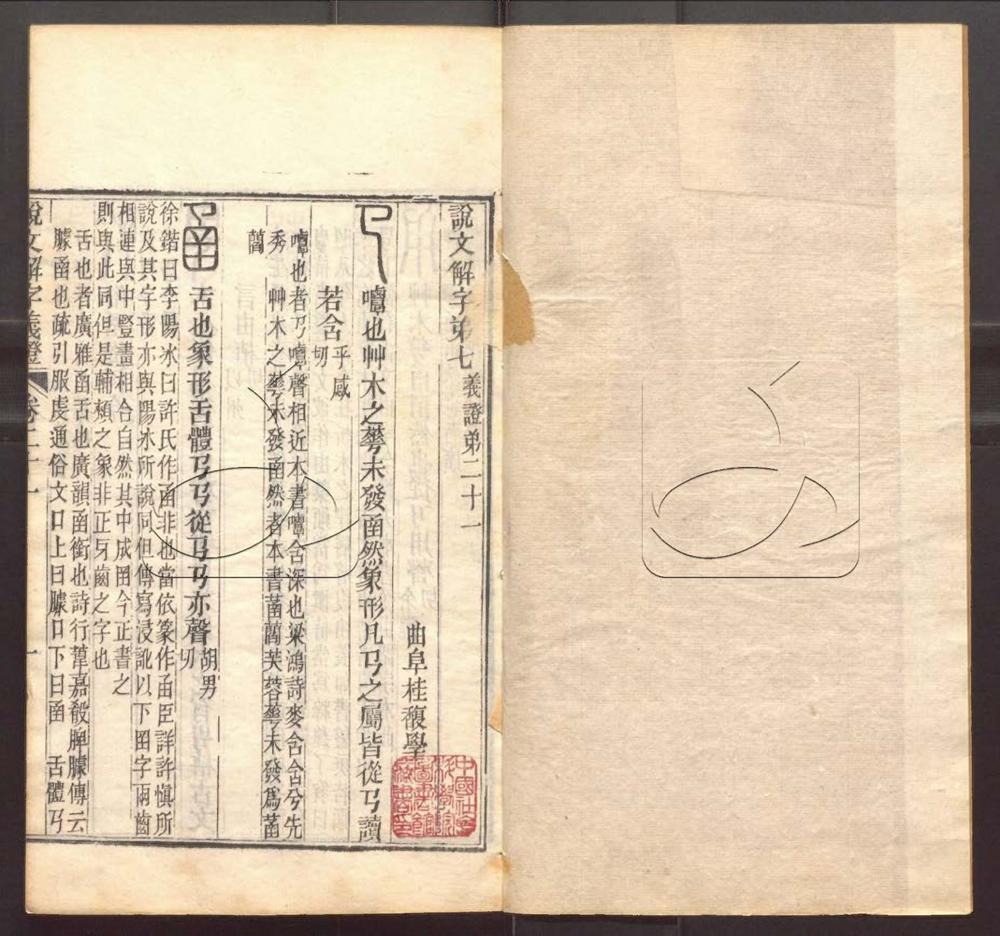 說文解字弟七 義證弟二十一
曲阜桂馥學
𢎘 嘾也艸木之䔢未發圅然象形凡𢎘之屬皆從𢎘讀
若含 乎感切
嘾也者𢎘嘾聲相近本書嘾含深也梁鴻詩麥含含兮先
秀 艸木之䔢未發圅然者本書菡藺芙蓉䔢未發爲菡
藺
圅 舌也象形舌體𢎘𢎘從𢎘𢎘亦聲 胡男切
徐鍇曰李陽冰曰許氏作圅非也當依篆作圅臣詳許慎所
說及其字形亦與陽冰所說同但傳寫浸訛以下𦥑字兩齒
相連與中豎畫相合自然其中成𦥑今正書之
則與此同但是輔頰之象非正牙齒之字也
舌也者廣雅圅舌也廣韻圅銜也詩行葦嘉殽脾臄傳云
臄圅也疏引服虔通俗文口上曰臄口下曰圅 舌體𢎘
說文解字義證 卷二十一 一
中國社會科學院圖書館藏書印